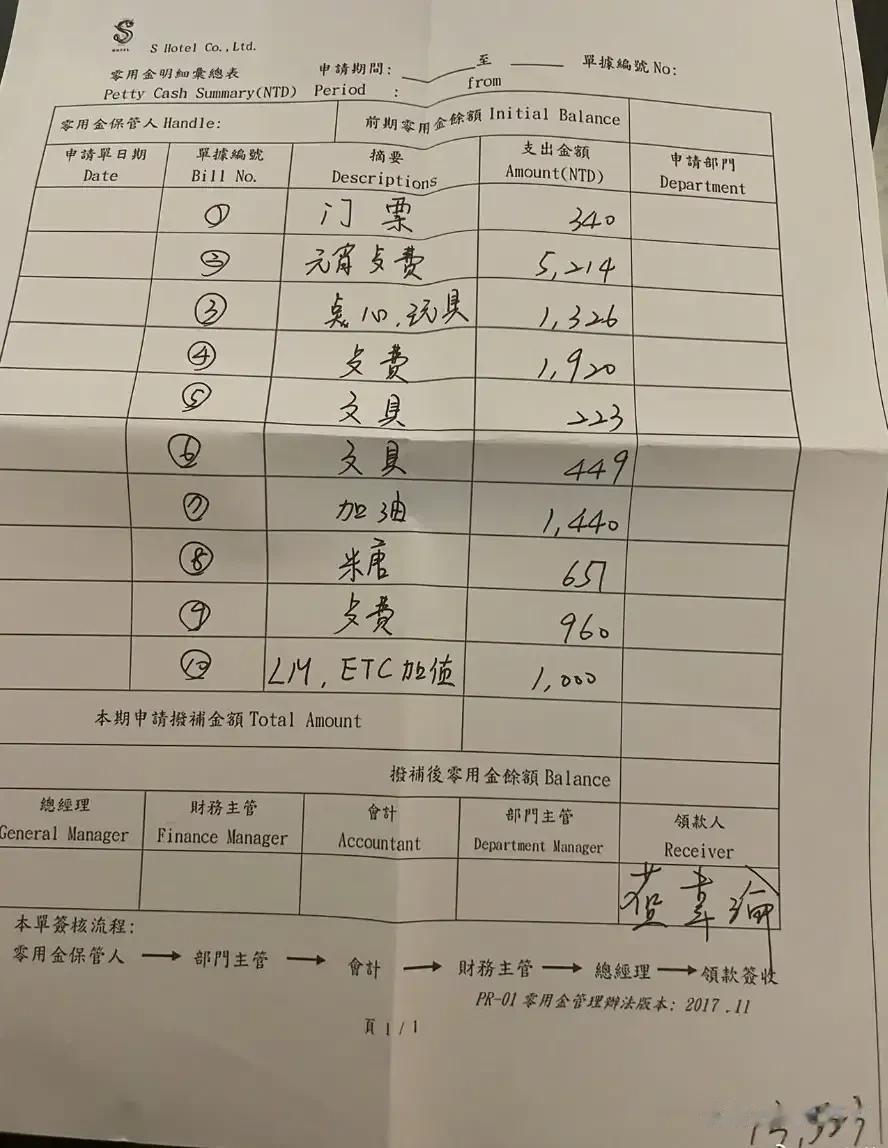 S
HOTEL
S Hotel Co.,Ltd.
零用金明細彙總表
申請期間: 至 單據編號 No:
Petty Cash Summary(NTD) Period : from
零用金保管人 Handle: 前期零用金餘額 Initial Balance
申請單日期 單據編號 摘要 支出金額 申請部門
Date Bill No. Descriptions Amount(NTD) Department
① 门票 340
② 元宵攴費 5,214
③ 桌心,玩具 1,326
④ 攴費 1,920
⑤ 文具 223
⑥ 文具 449
⑦ 加油 1,440
⑧ 米唐 657
⑨ 攴費 960
⑩ LM, ETC加值 1,000
本期申請撥補金額 Total Amount
撥補後零用金餘額 Balance
總經理 財務主管 會計 部門主管 領款人
General Manager Finance Manager Accountant Department Manager Receiver
本單簽核流程:
零用金保管人 → 部門主管 → 會計 → 財務主管 → 總經理 → 領款簽收
PR-01 零用金管理辦法版本: 2017 .11
頁 1 / 1